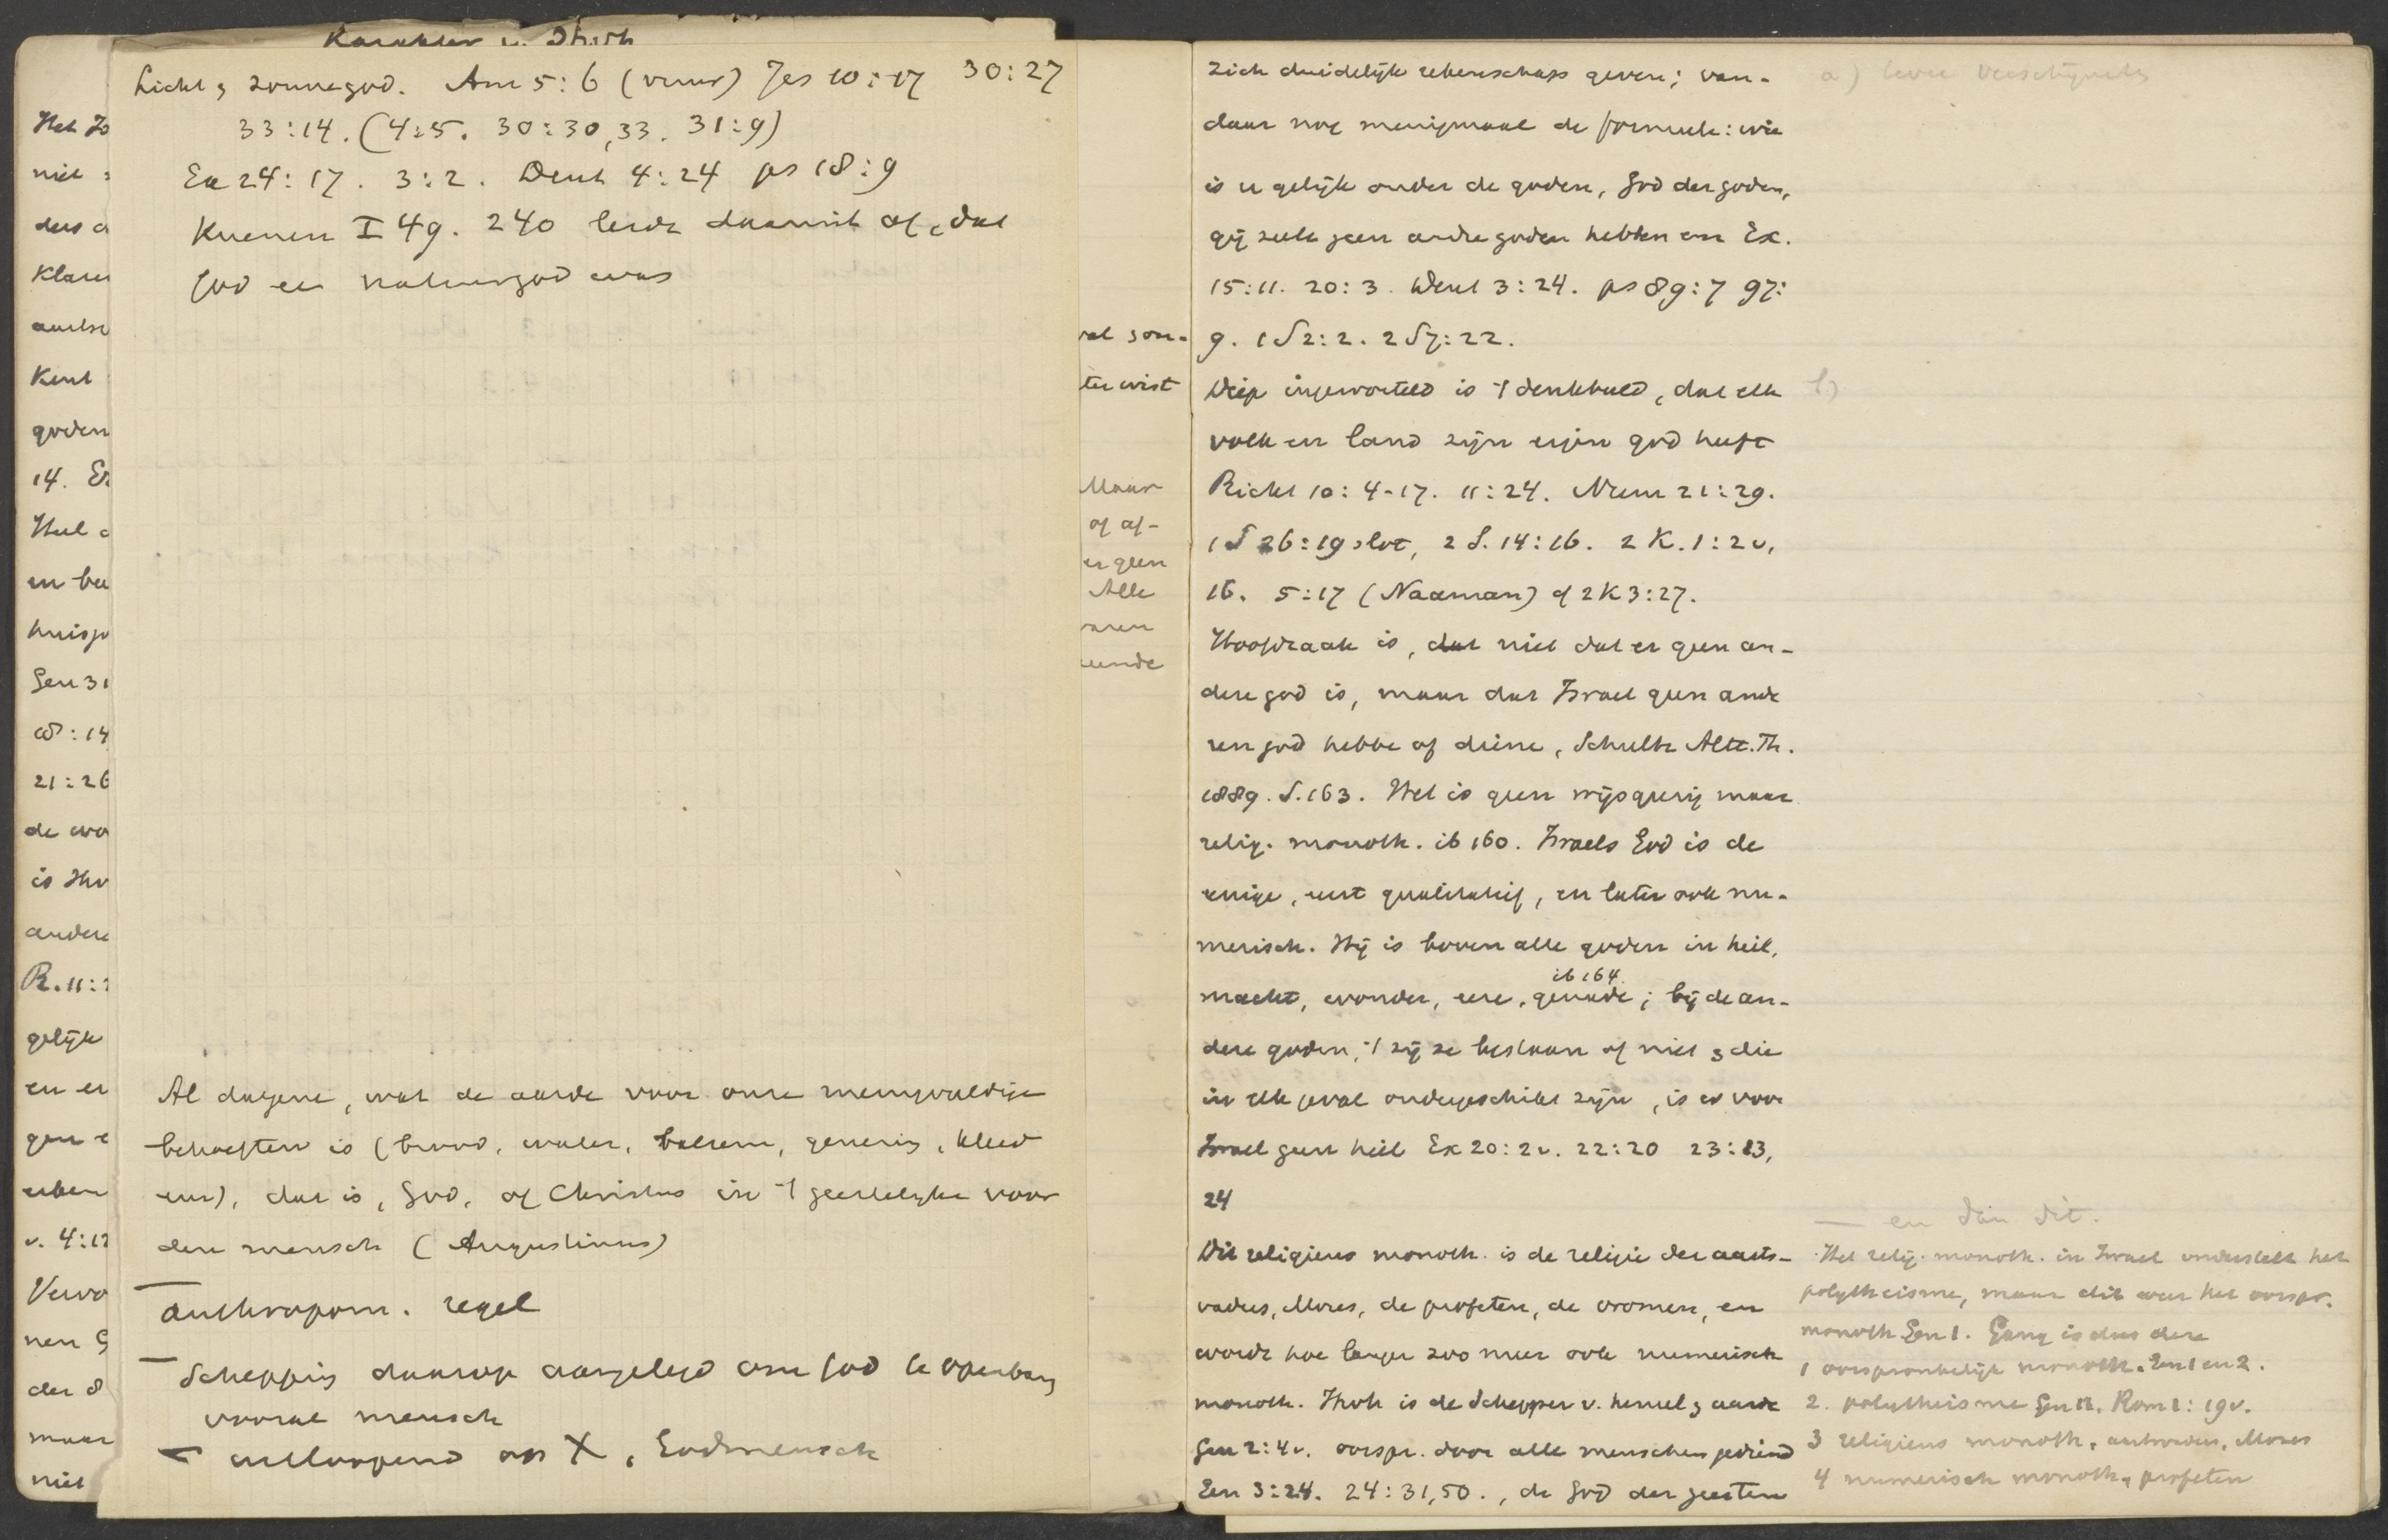 Karakter v.
Licht & zonnegod. Am 5:6 (vuur) Jes 10:17 30:27
33:14. (4:5. 30:30,33. 31:9)
Ex 24:17. 3:2. Deut 4:24 ps 18:9
Kuenen I 49. 240 leidt daaruit af, dat
God een natuurgod was
Al datgene, wat de aarde voor onze menigvuldige
behoeften is (brood, water, balsem, genezing, kleed
enz), dat is, God, of Christus in 't geestelijke voor
den mensch (Augustinus)
— anthropom. regel
— Schepping daarop aangelegd om God te openbaren
vooral mensch
— uitloopend op X, Godmensch
Het Jo
niet
dus a
Klaar
Kent
goden
14. Ex
Heel
en bee
huisgo
Gen 31
21:26
de wo
is Ihv
andere
R. 11:2
gelijk
en er
geen
v. 4:12
Vervo
nen G
der
maar
niet
ter wist
Maar
of af-
er geen
Alle
waren
zich duidelijk rekenschap geven; van-
daar nog menigmaal de formule: wie
is u gelijk onder de goden, God der goden,
gij zult geen andre goden hebben enz Ex.
15:11. 20:3. Deut 3:24. ps 89:7 97:
9. 1 S 2:2. 2 S 7:22.
Diep ingeworteld is 't denkbeeld, dat elk
volk en land zijn eigen god heeft
Richt 10:4-17. 11:24. Num 21:29.
1 S 26:19 slot, 2 S. 14:16. 2 K. 1:2 v,
16. 5:17 (Naäman) cf 2 K 3:27.
Hoofdzaak is, dat niet dat er geen an-
dere god is, maar dat Israel geen ande
ren god hebbe of diene, Schultz Altt. Th.
1889. S. 163. Het is geen wijsgeerig maar
relig. monoth. ib 160. Israels God is de
eenige, eerst qualitatief, en later ook nu-
merisch. Hij is boven alle goden in heil,
macht, wonder, eere, genade; ib 164. bij de an-
dere goden, 't zij ze bestaan of niet & die
in elk geval ondergeschikt zijn, is er voor
Israel geen heil Ex 20:2 v. 22:20 23:13,
24
Dit religieus monoth. is de religie der aarts-
vaders, Mozes, de profeten, de vromen, en
wordt hoe langer zoo meer ook numerisch
monoth. Ihvh is de Schepper v. hemel & aarde
Gen 2:4 v. oorspr. door alle menschen gediend
Gen 3:24. 24:31,50., de God der geesten
a)
b)
— en dan dit.
Het relig. monoth. in Israel onderstelt het
polytheisme, maar dit weer het oorspr.
monoth Gen 1. Gang is dus deze
1 oorspronkelijk monoth. Gen 1 en 2.
2. polytheisme Gen 11. Rom 1:19 v.
3 religieus monoth. aartsvaders, Mozes
4 numerisch monoth. profeten